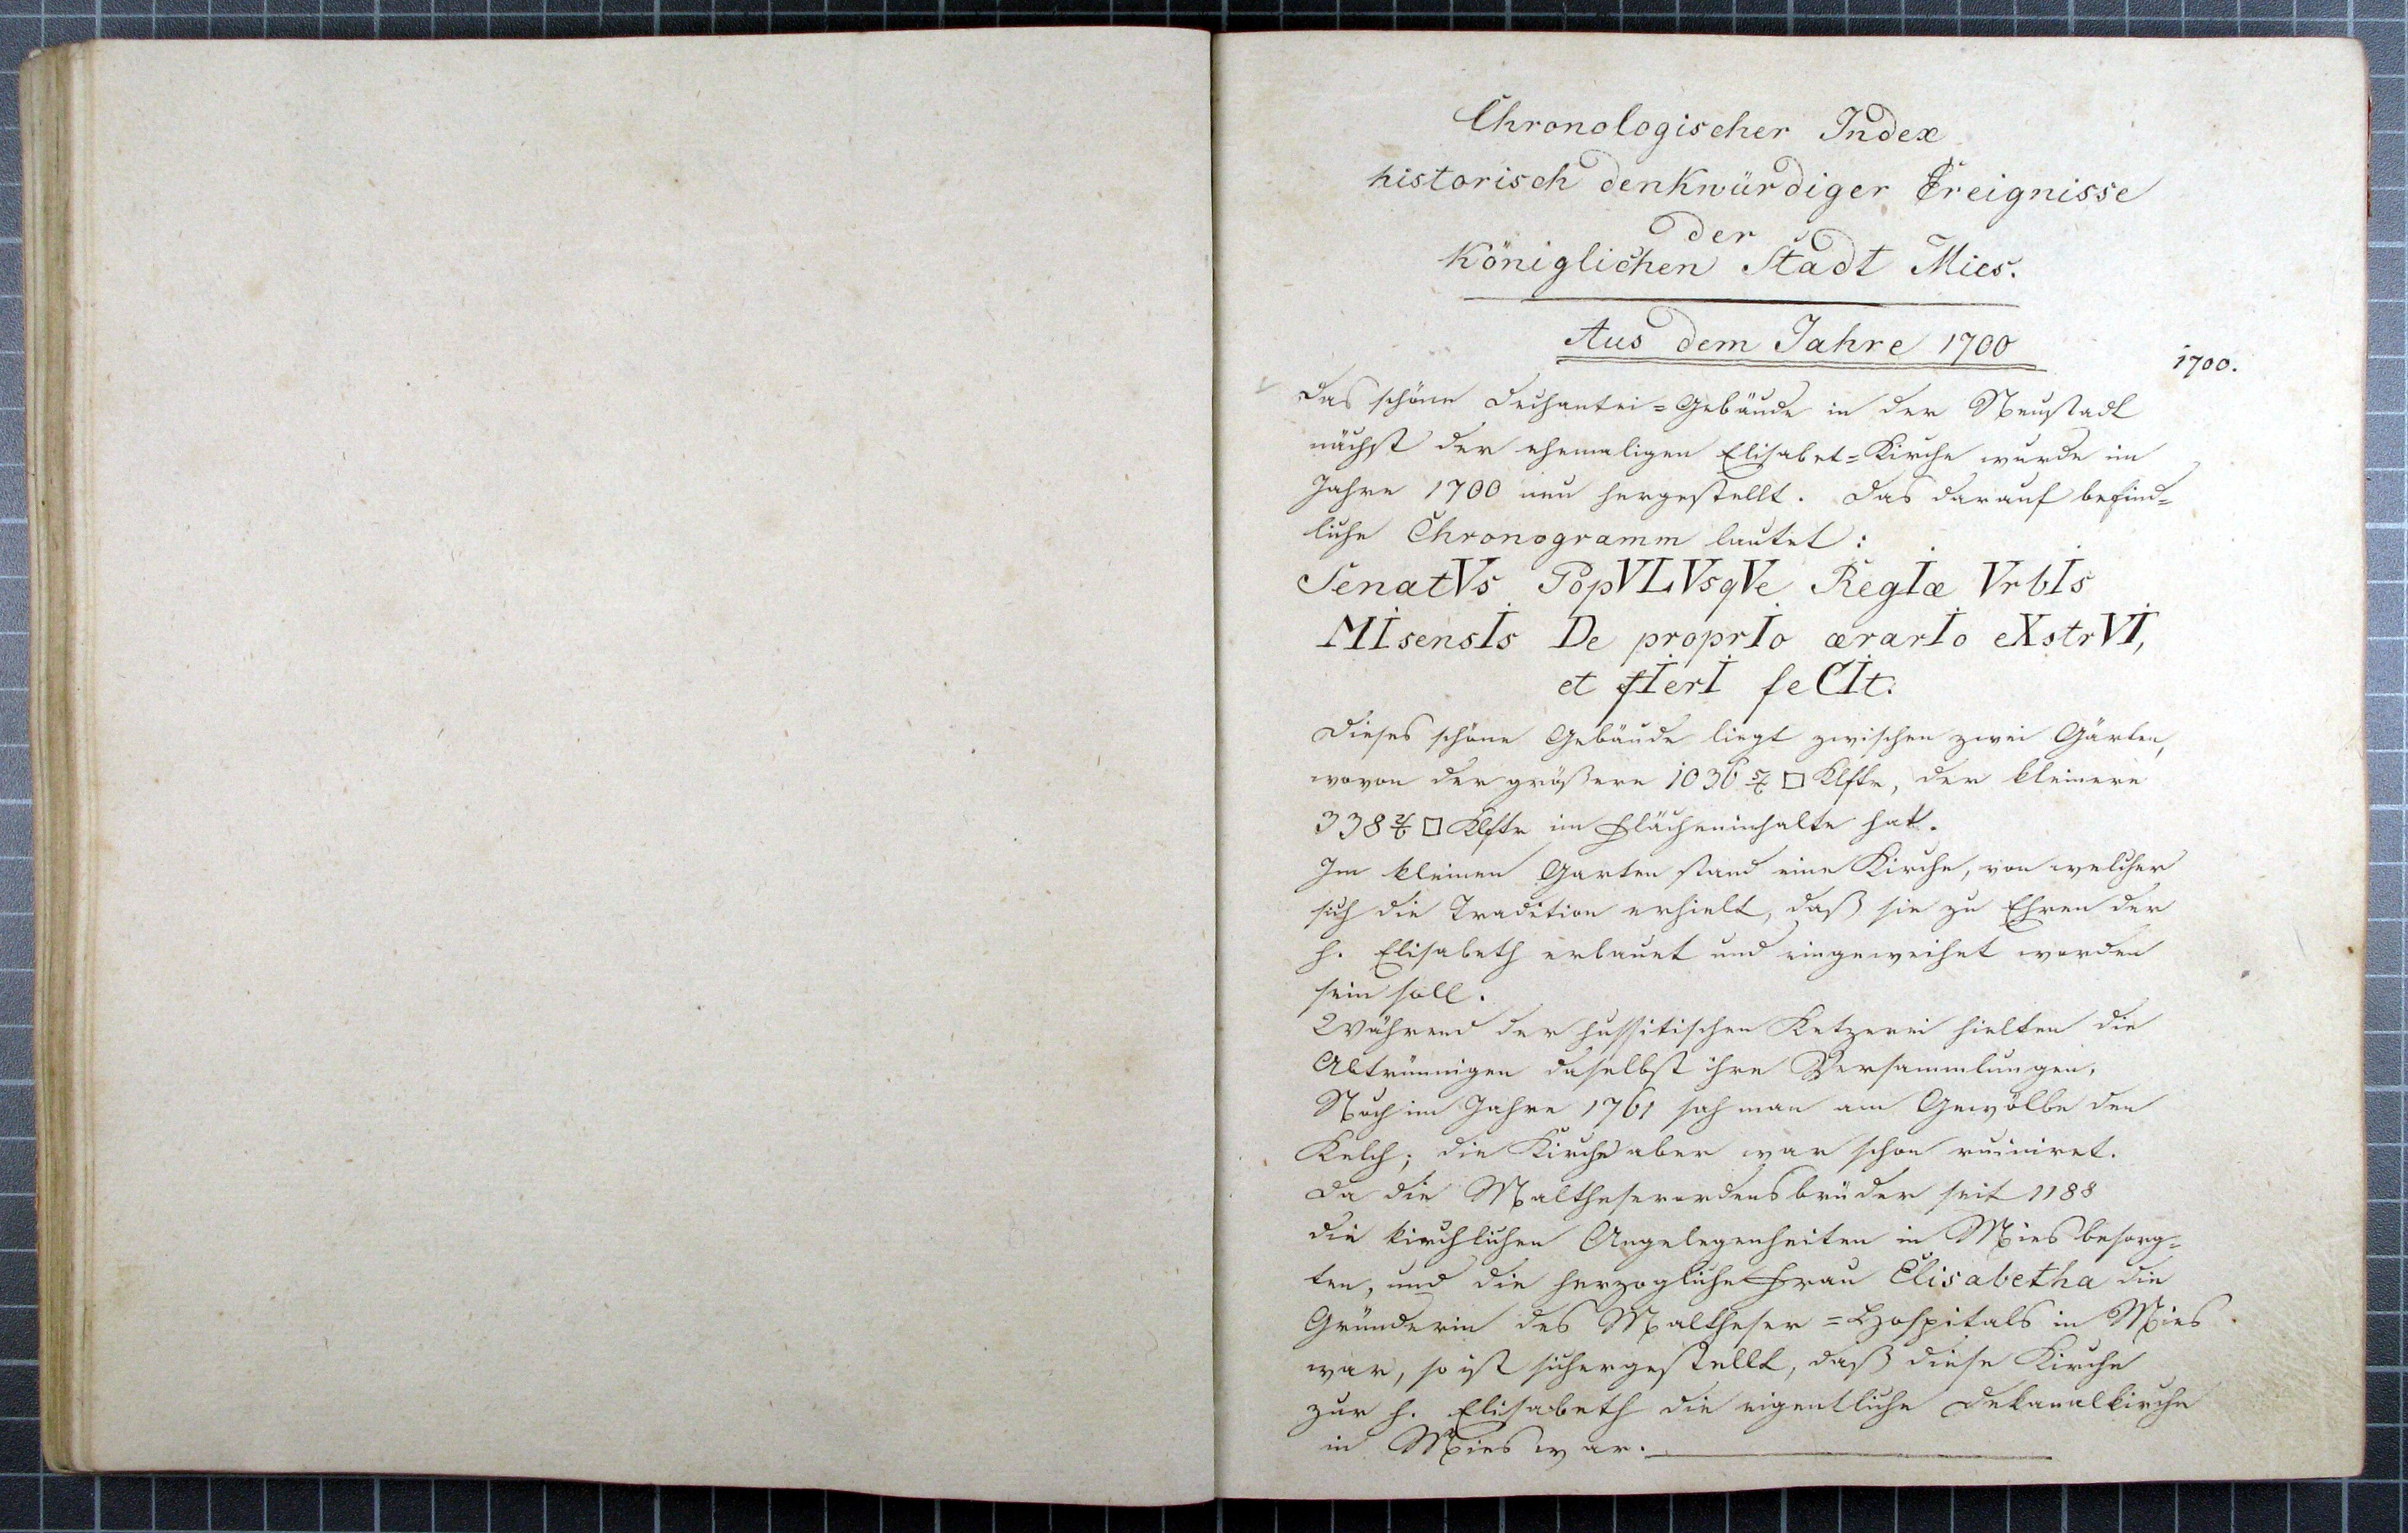 Chronologischer Index
historisch denkwürdiger Ereignisse
der
königlichen Stadt Mies.
Aus dem Jahre 1700
1700.
Das schöne Dechantei=Gebäude in der Neustadt
nächst der ehemaligen Elisabet=Kirche wurde im
Jahre 1700 neu hergestellt. Das darauf befind=
liche Chronogramm lautet:
SenatVs PopVLVsqVe RegIæ VrbIs
MIsensIs De proprIo ærarIo eXstrVI,
et fIerI feCIt.
Dieses schöne Gebäude liegt zwischen zwei Gärten,
wovon der größere 1036 5/6 □ Klftr, der kleinere
338 2/6 □ Klftr im Flächeninhalte hat.
Im kleinen Garten stand eine Kirche, von welcher
sich die Tradition erhielt, daß sie zu Ehren der
h. Elisabeth erbauet und eingeweihet worden
sein soll.
Während der hussitischen Ketzerei hielten die
Abtrünnigen daselbst ihre Versammlungen.
Noch im Jahre 1761 sah man am Gewölbe den
Kelch; die Kirche aber war schon ruiniret.
Da die Maltheserordensbrüder seit 1188
die kirchlichen Angelegenheiten in Mies besorg=
ten, und die herzogliche Frau Elisabetha die
Gründerin des Maltheser=Hospitals in Mies
war, so ist sichergestellt, daß diese Kirche
zur h. Elisabeth die eigentliche Dekanalkirche
in Mies war.